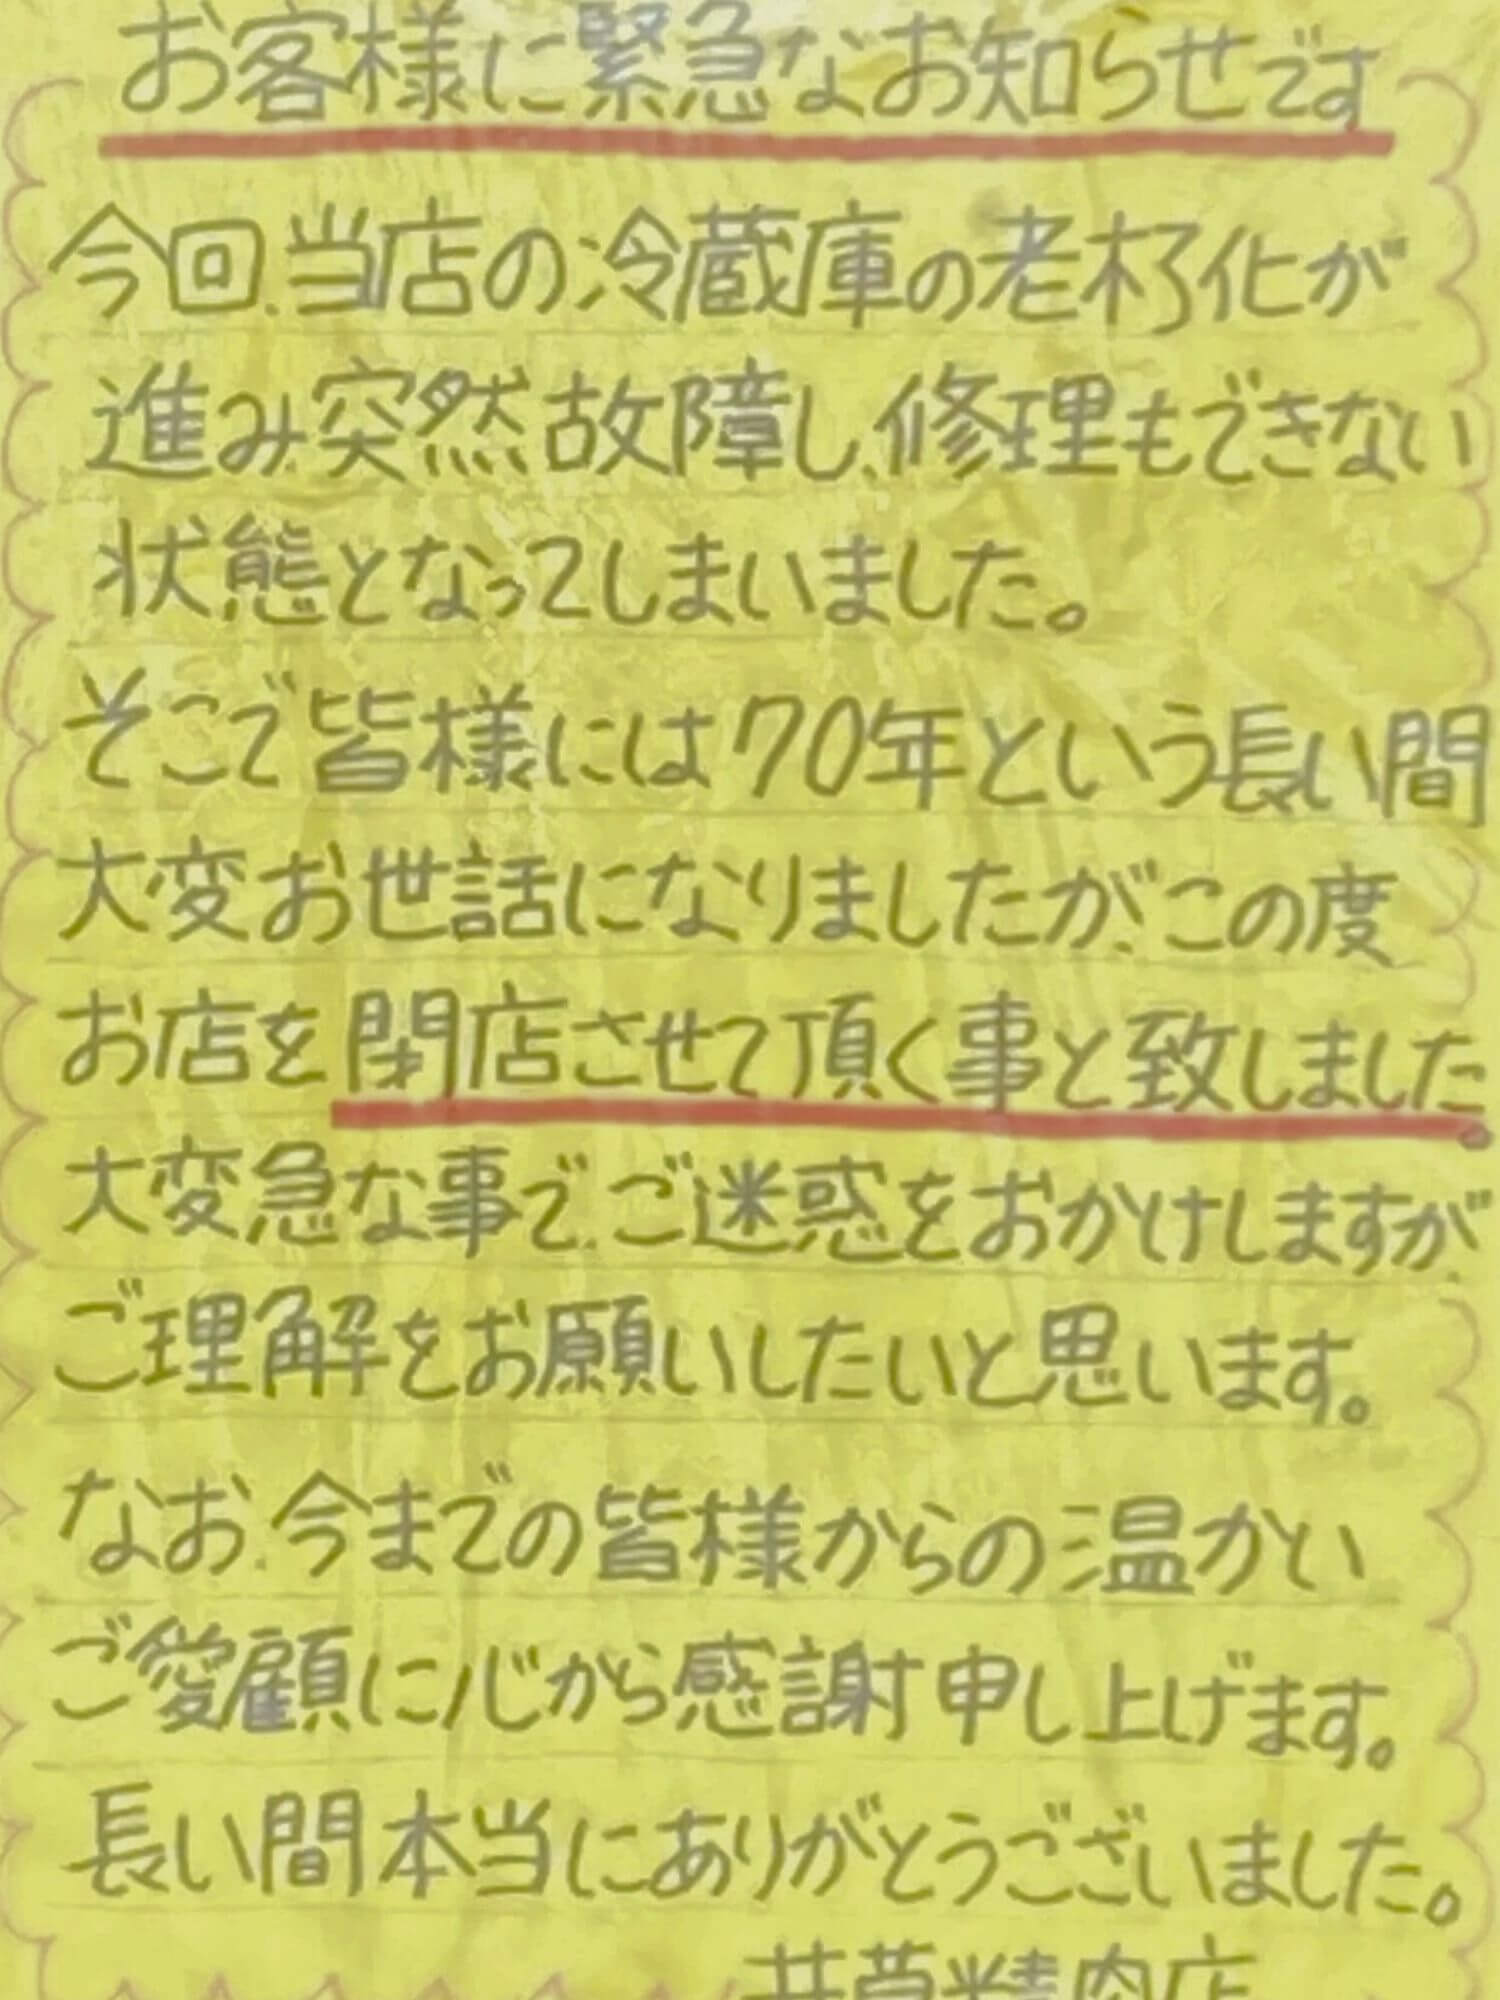 お客様に緊急なお知らせです
今回、当店の冷蔵庫の老朽化が
進み、突然故障し、修理もできない
状態となってしまいました。
そこで皆様には70年という長い間
大変お世話になりましたが、この度
お店を閉店させて頂く事と致しました。
大変急な事で、ご迷惑をおかけしますが、
ご理解をお願いしたいと思います。
なお、今までの皆様からの温かい
ご愛顧に心から感謝申し上げます。
長い間本当にありがとうございました。
精肉店